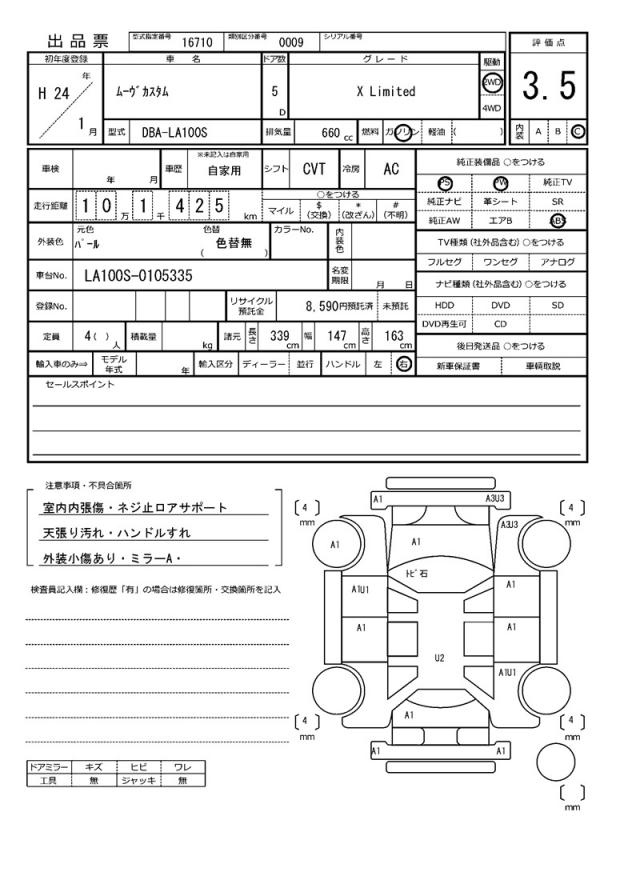 出品票 型式指定番号 16710 類別区分番号 0009 シリアル番号
評価点
3.5
内装 A B C
初年度登録 車名 ドア数 グレード 駆動
H 24 年 1 月
ムーヴカスタム 5 D X Limited 2WD
4WD
型式 DBA-LA100S 排気量 660 cc 燃料 ガソリン 軽油 ( )
車検 年 月 車歴 ※未記入は自家用 自家用 シフト CVT 冷房 AC
走行距離 1 0 万 1 千 4 2 5 km ○をつける
マイル $(交換) *(改ざん) #(不明)
外装色 元色 パール 色替 ( 色替無 ) カラーNo. 内装色
車台No. LA100S-0105335 名変期限 月 日
登録No. リサイクル預託金 8,590円預託済 未預託
定員 4( )人 積載量 kg 諸元 長さ 339 cm 幅 147 cm 高さ 163 cm
輸入車のみ⇒ モデル年式 年 輸入区分 ディーラー 並行 ハンドル 左 右
純正装備品 ○をつける
PS PW 純正TV
純正ナビ 革シート SR
純正AW エアB ABS
TV種類(社外品含む)○をつける
フルセグ ワンセグ アナログ
ナビ種類(社外品含む)○をつける
HDD DVD SD
DVD再生可 CD
後日発送品 ○をつける
新車保証書 車輌取説
セールスポイント
注意事項・不具合箇所
室内内張傷・ネジ止ロアサポート
天張り汚れ・ハンドルすれ
外装小傷あり・ミラーA・
検査員記入欄:修復歴「有」の場合は修復箇所・交換箇所を記入
ドアミラー キズ ヒビ ワレ
工具 無 ジャッキ 無
A1 A3U3
[ 4 ] mm [ 4 ] mm
A3U3
A1 A1
トビ石
A1U1 A1
A1 A1
U2
A1U1
A1
[ 4 ] mm [ 4 ] mm
A1 A1
[ ] mm